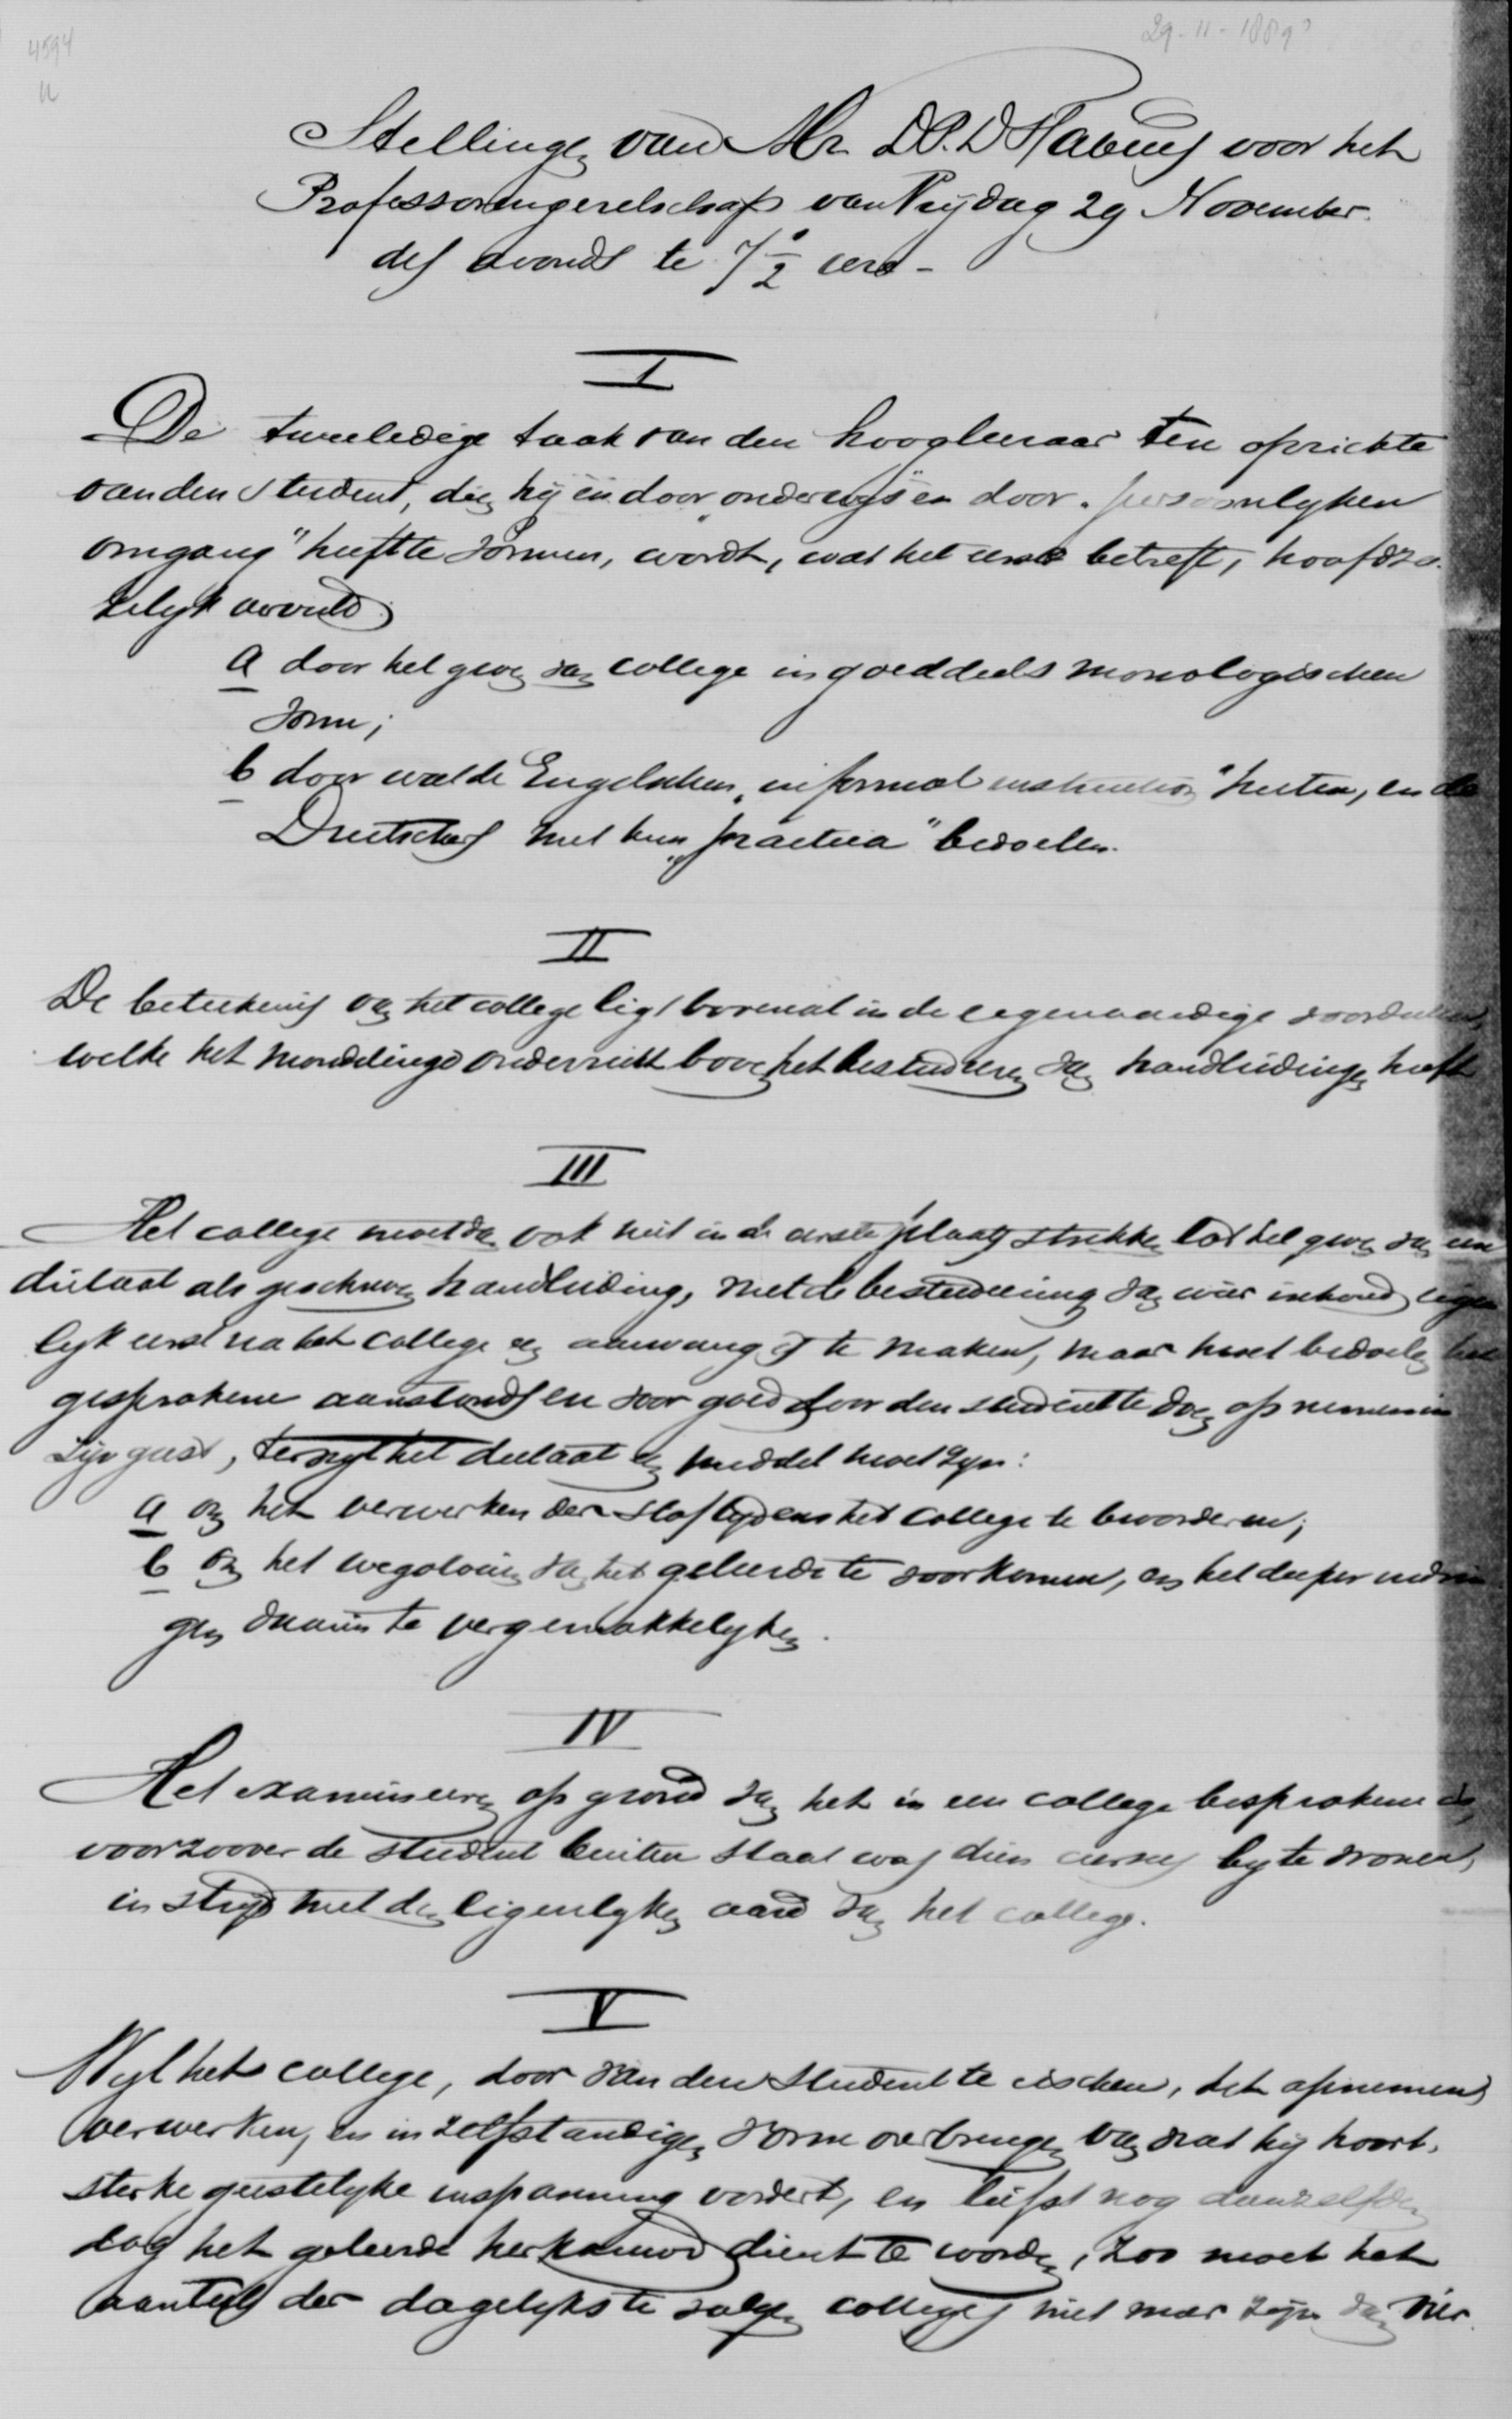 4594
29-11-1889
Stellingen van Mr. D.P.D. Fabius voor het
Professorengezelschap van Vrijdag 29 November
des avonds te 7½ ure -
I
De tweeledige taak van den hoogleeraar ten opzichte
van den student, dien hij èn door „onderwijs" èn door „persoonlyken
omgang" heeft te vormen, wordt, wat het eerste betreft, hoofdza-
kelyk vervuld
a door het geven van college in goeddeels monologischen
vorm;
b door wat de Engelschen „informal instruction" heeten, en de
Duitschers met hun „practica" bedoelen.
II
De beteekenis van het college ligt bovenal in de eigenaardige voordeelen,
welke het mondelinge onderricht boven het bestudeeren van handleidingen heeft
III
Het college moet dan ook niet in de eerste plaats strekken tot het geven van een
dictaat als geschreven handleiding, met de bestudeering van wier inhoud eigen
lyk eerst na het college een aanvang is te maken, maar moet bedoelen het
gesprokene aanstonds en voor goed door den student te doen opnemen in
zijn geest, terwyl het dictaat een middel moet zyn:
a om het verwerken der stof tydens het college te bevorderen;
b om het wegvloeien van het geleerde te voorkomen, en het dieper indrin
gen daarin te vergemakkelyken.
IV
Het examineeren op grond van het in een college besprokene is,
voorzoover de student buiten staat was dien cursus by te wonen,
in stryd met den eigenlyken aard van het college.
V
Wyl het college, door van den student te eischen, het opnemen,
verwerken, en in zelfstandigen vorm overbrengen van wat hij hoort,
sterke geestelyke inspanning vordert, en liefst nog denzelfden
dag het geleerde herkauwd dient te worden, zoo moet het
aantal der dagelyks te volgen colleges niet meer zijn dan vier.